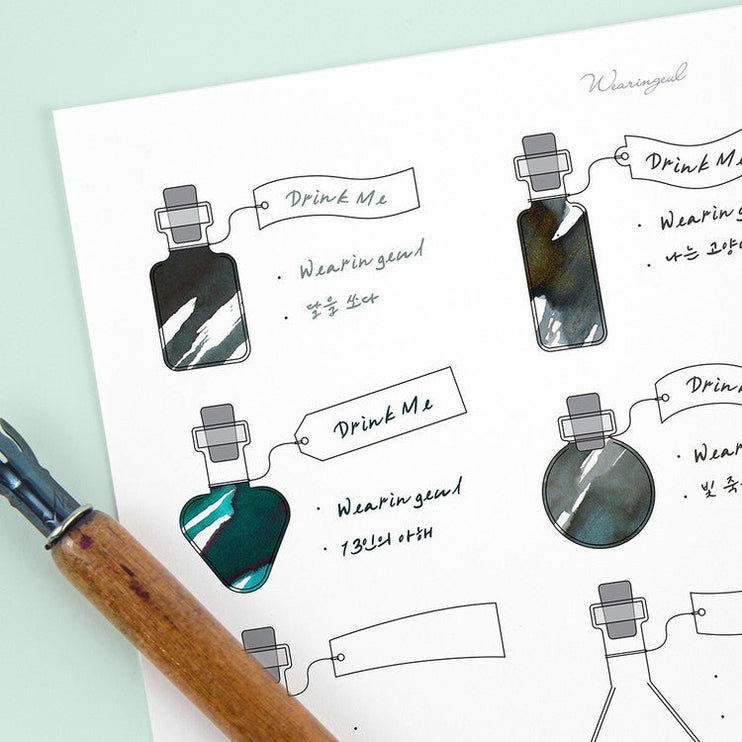 Wearingeul
Drink Me
Wearingeul
달을 쏘다
Drink Me
Wearing
나는 고양이
Drink Me
Wearingeul
13인의 아해
Drin
Wear
빛 죽